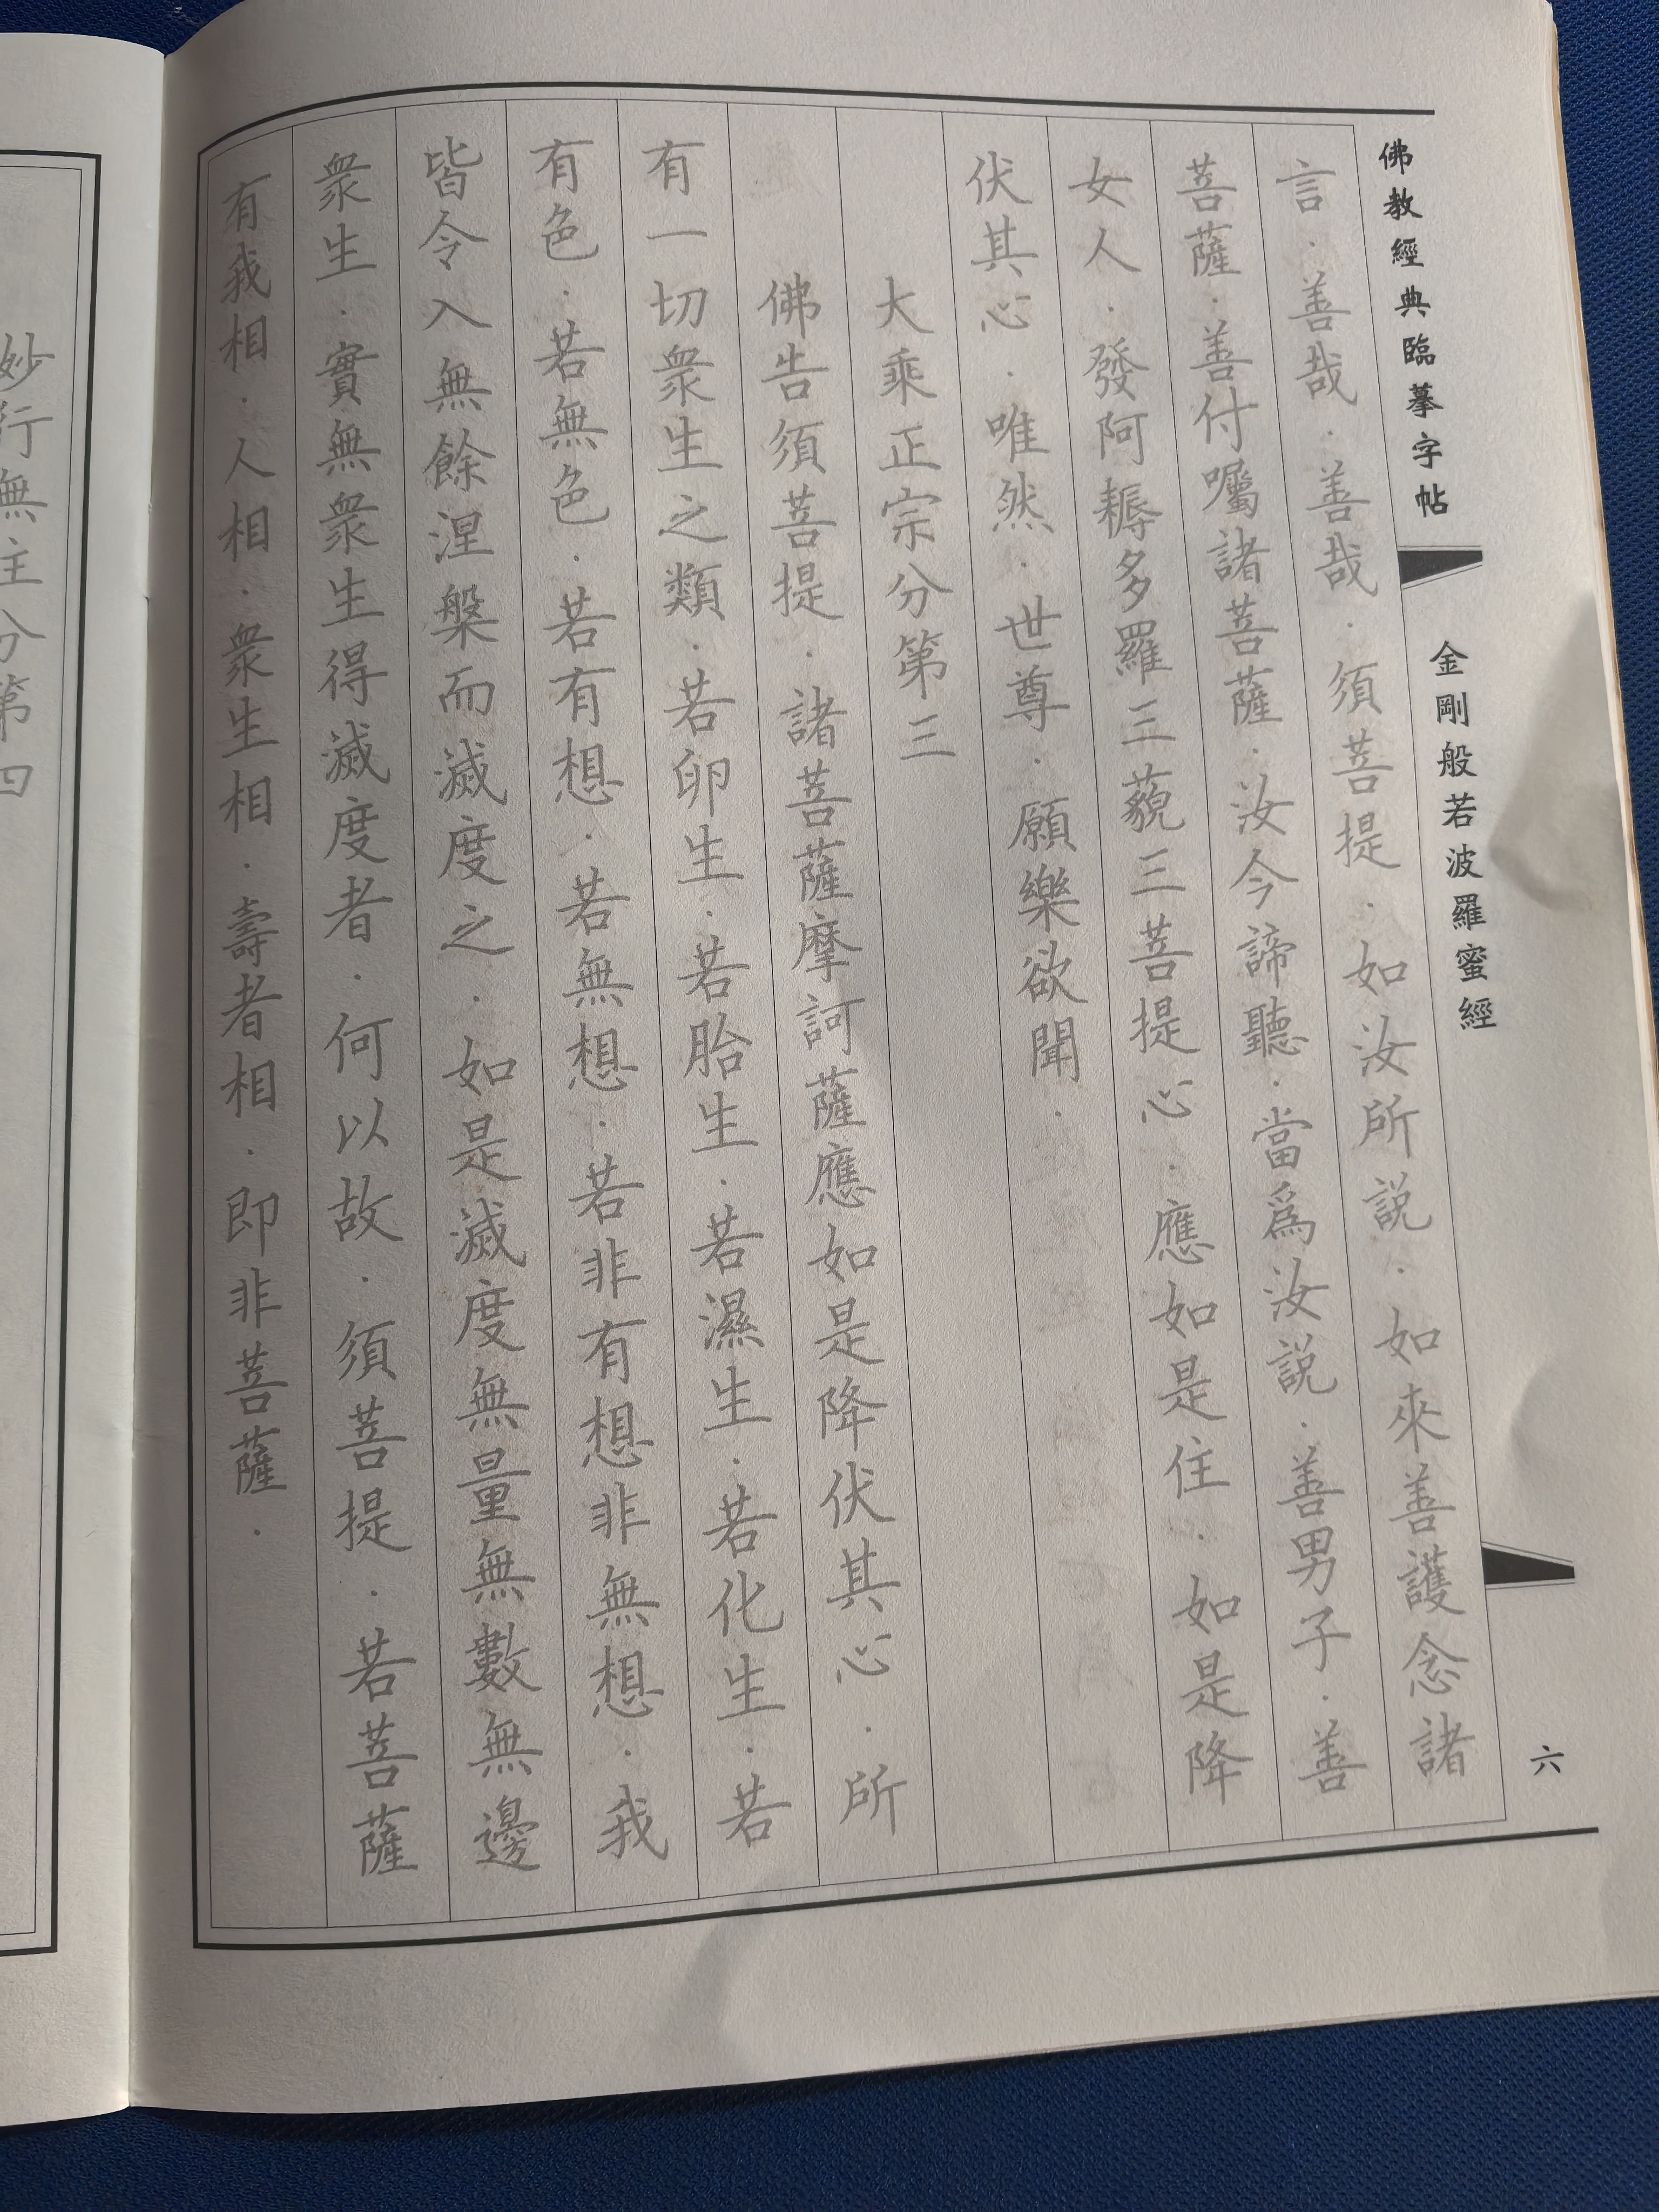 佛教經典臨摹字帖
金剛般若波羅蜜經
六
言．善哉．善哉．須菩提．如汝所説．如來善護念諸
菩薩．善付囑諸菩薩．汝今諦聽．當爲汝説．善男子．善
女人．發阿耨多羅三藐三菩提心．應如是住．如是降
伏其心．唯然．世尊．願樂欲聞．
大乘正宗分第三
佛告須菩提．諸菩薩摩訶薩應如是降伏其心．所
有一切衆生之類．若卵生．若胎生．若濕生．若化生．若
有色．若無色．若有想．若無想．若非有想非無想．我
皆令入無餘涅槃而滅度之．如是滅度無量無數無邊
衆生．實無衆生得滅度者．何以故．須菩提．若菩薩
有我相．人相．衆生相．壽者相．即非菩薩．
妙行無主分第四